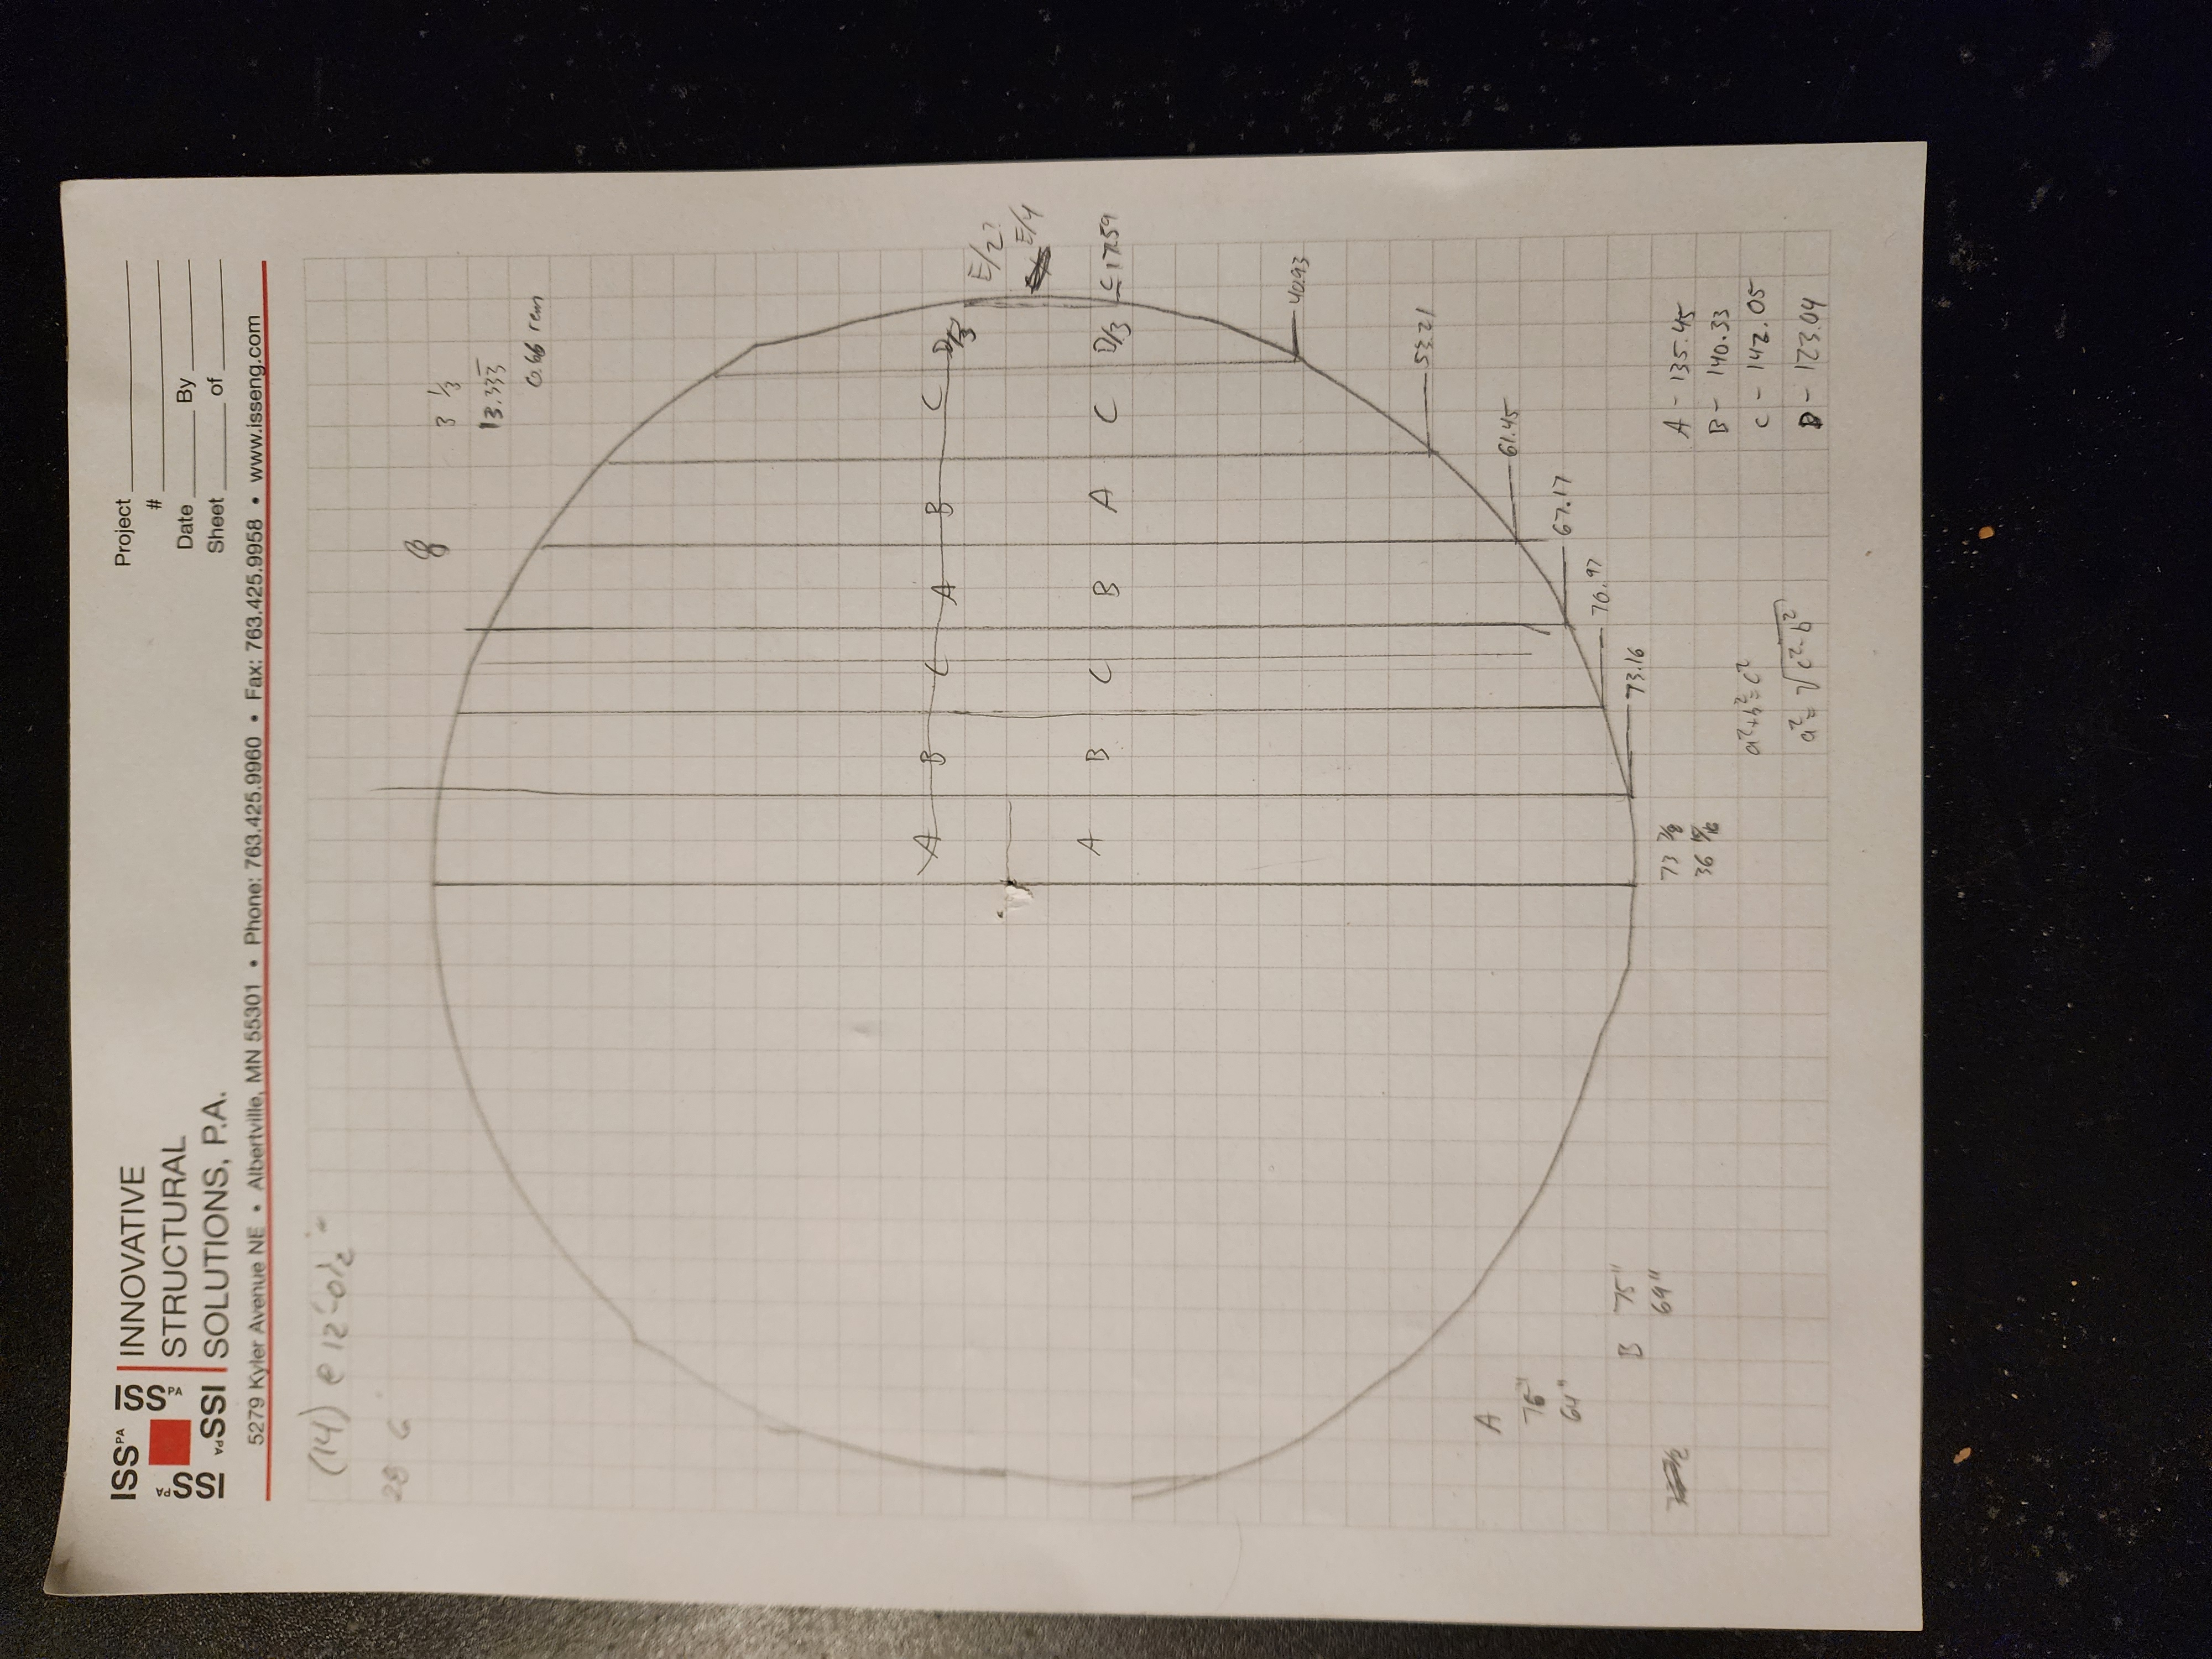 ISS PA
ISS PA
ISS PA
ISS PA
INNOVATIVE
STRUCTURAL
SOLUTIONS, P.A.
Project
#
Date By
Sheet of
5279 Kyler Avenue NE • Albertville, MN 55301 • Phone: 763.425.9960 • Fax: 763.425.9958 • www.isseng.com
(14) @ 12'-0 1/2"
28 6
8
3 1/3
13.333
0.66 rem
A B C A B C D/3
E/2?
E/4
A B C B A C D/3
17.59
40.93
53.21
61.45
67.17
70.97
73.16
A
76"
64"
B 75"
69"
73 7/8
36 15/16
a²+b²=c²
a²=√c²-b²
A - 135.45
B - 140.33
C - 142.05
D - 123.04